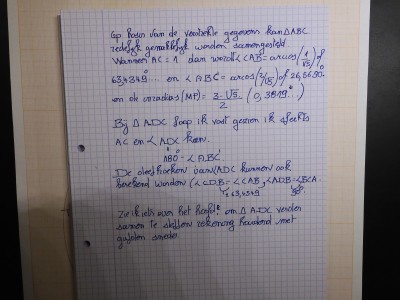 Op basis van de verstrekte gegevens kan ΔABC
redelijk gemakkelijk worden samengesteld
Wanneer AC = 1 dan wordt ∠CAB = arccos(1/√5) of
63,4349° en ∠ABC = arccos(2/√5) of 26,5650°
en de inradius (MP) = 3-√5/2 (0,3819...)
Bij ΔADC loop ik vast gezien ik slechts
AC en ∠ADC ken.
De deelhoeken van ADC kunnen ook
berekend worden (∠CDB = ∠CAB, ∠ADB = ∠BCA
63,4349
Zie ik iets over het hoofd? om ΔADC verder
samen te stellen rekening houdend met
gulden snede.